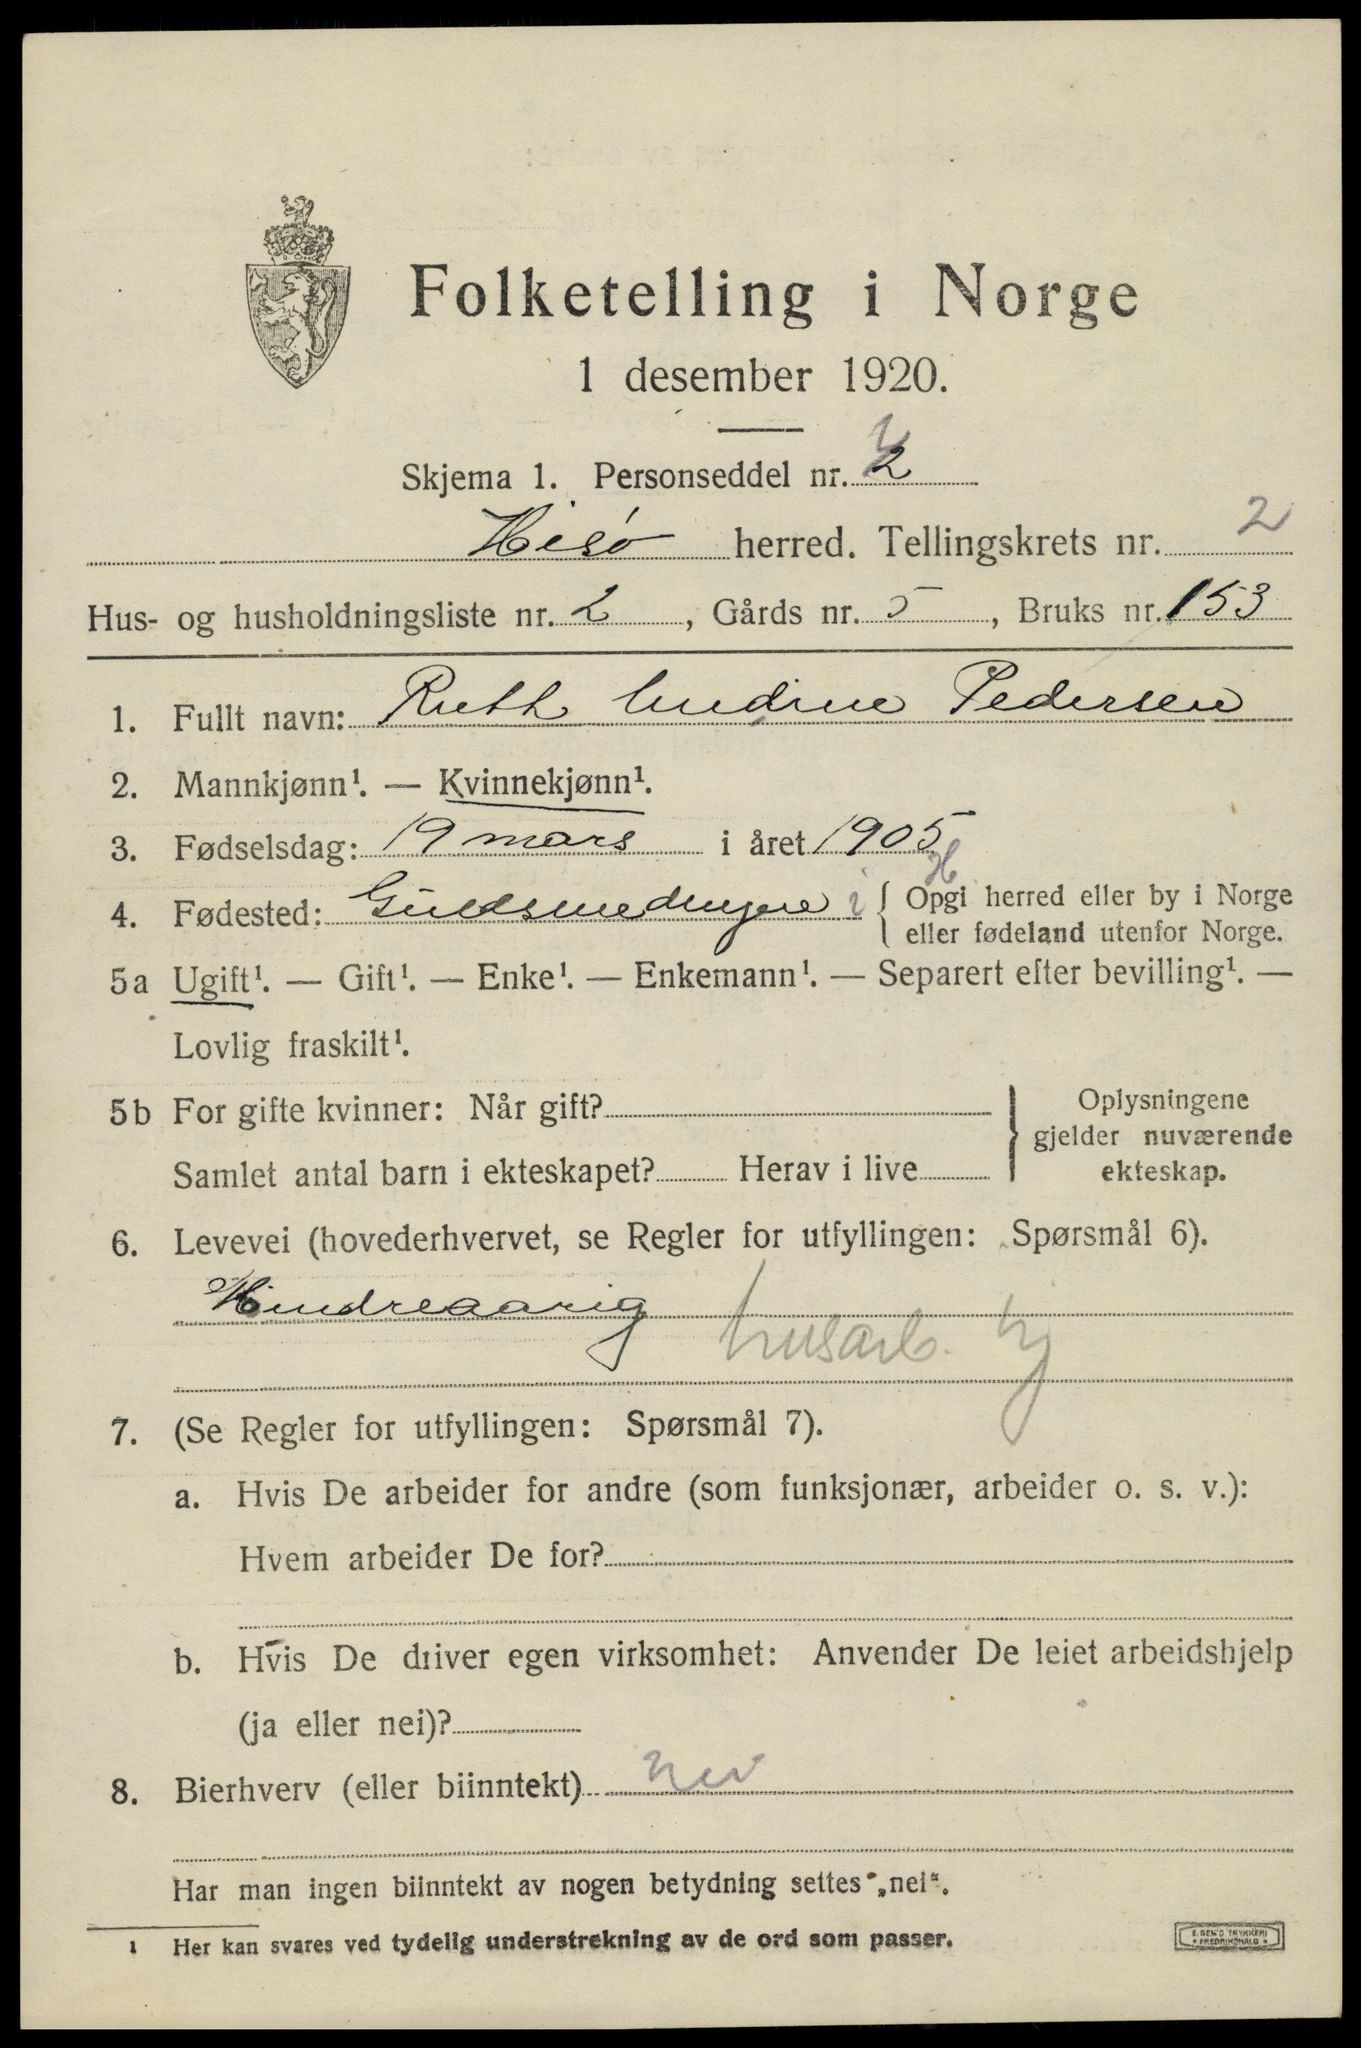 Folketelling i Norge
1 desember 1920.
Skjema 1. Personseddel nr. 2
Hisø herred. Tellingskrets nr. 2
Hus- og husholdningsliste nr. 2, Gårds nr. 5, Bruks nr. 153
1. Fullt navn: Ruth Undine Pedersen
2. Mannkjønn¹. — Kvinnekjønn¹.
3. Fødselsdag: 19 mars i året 1905
4. Fødested: i H. { Opgi herred eller by i Norge
eller fødeland utenfor Norge.
5a Ugift¹. — Gift¹. — Enke¹. — Enkemann¹. — Separert efter bevilling¹. —
Lovlig fraskilt¹.
5b For gifte kvinner: Når gift?
Samlet antal barn i ekteskapet? Herav i live
} Oplysningene
gjelder nuværende
ekteskap.
6. Levevei (hovederhvervet, se Regler for utfyllingen: Spørsmål 6).
husarb. hj
7. (Se Regler for utfyllingen: Spørsmål 7).
a. Hvis De arbeider for andre (som funksjonær, arbeider o. s. v.):
Hvem arbeider De for?
b. Hvis De driver egen virksomhet: Anvender De leiet arbeidshjelp
(ja eller nei)?
8. Bierhverv (eller biinntekt) nei
Har man ingen biinntekt av nogen betydning settes „nei“.
1 Her kan svares ved tydelig understrekning av de ord som passer.
E. SEM'S TRYKKERI
* FREDRIKSHALD *